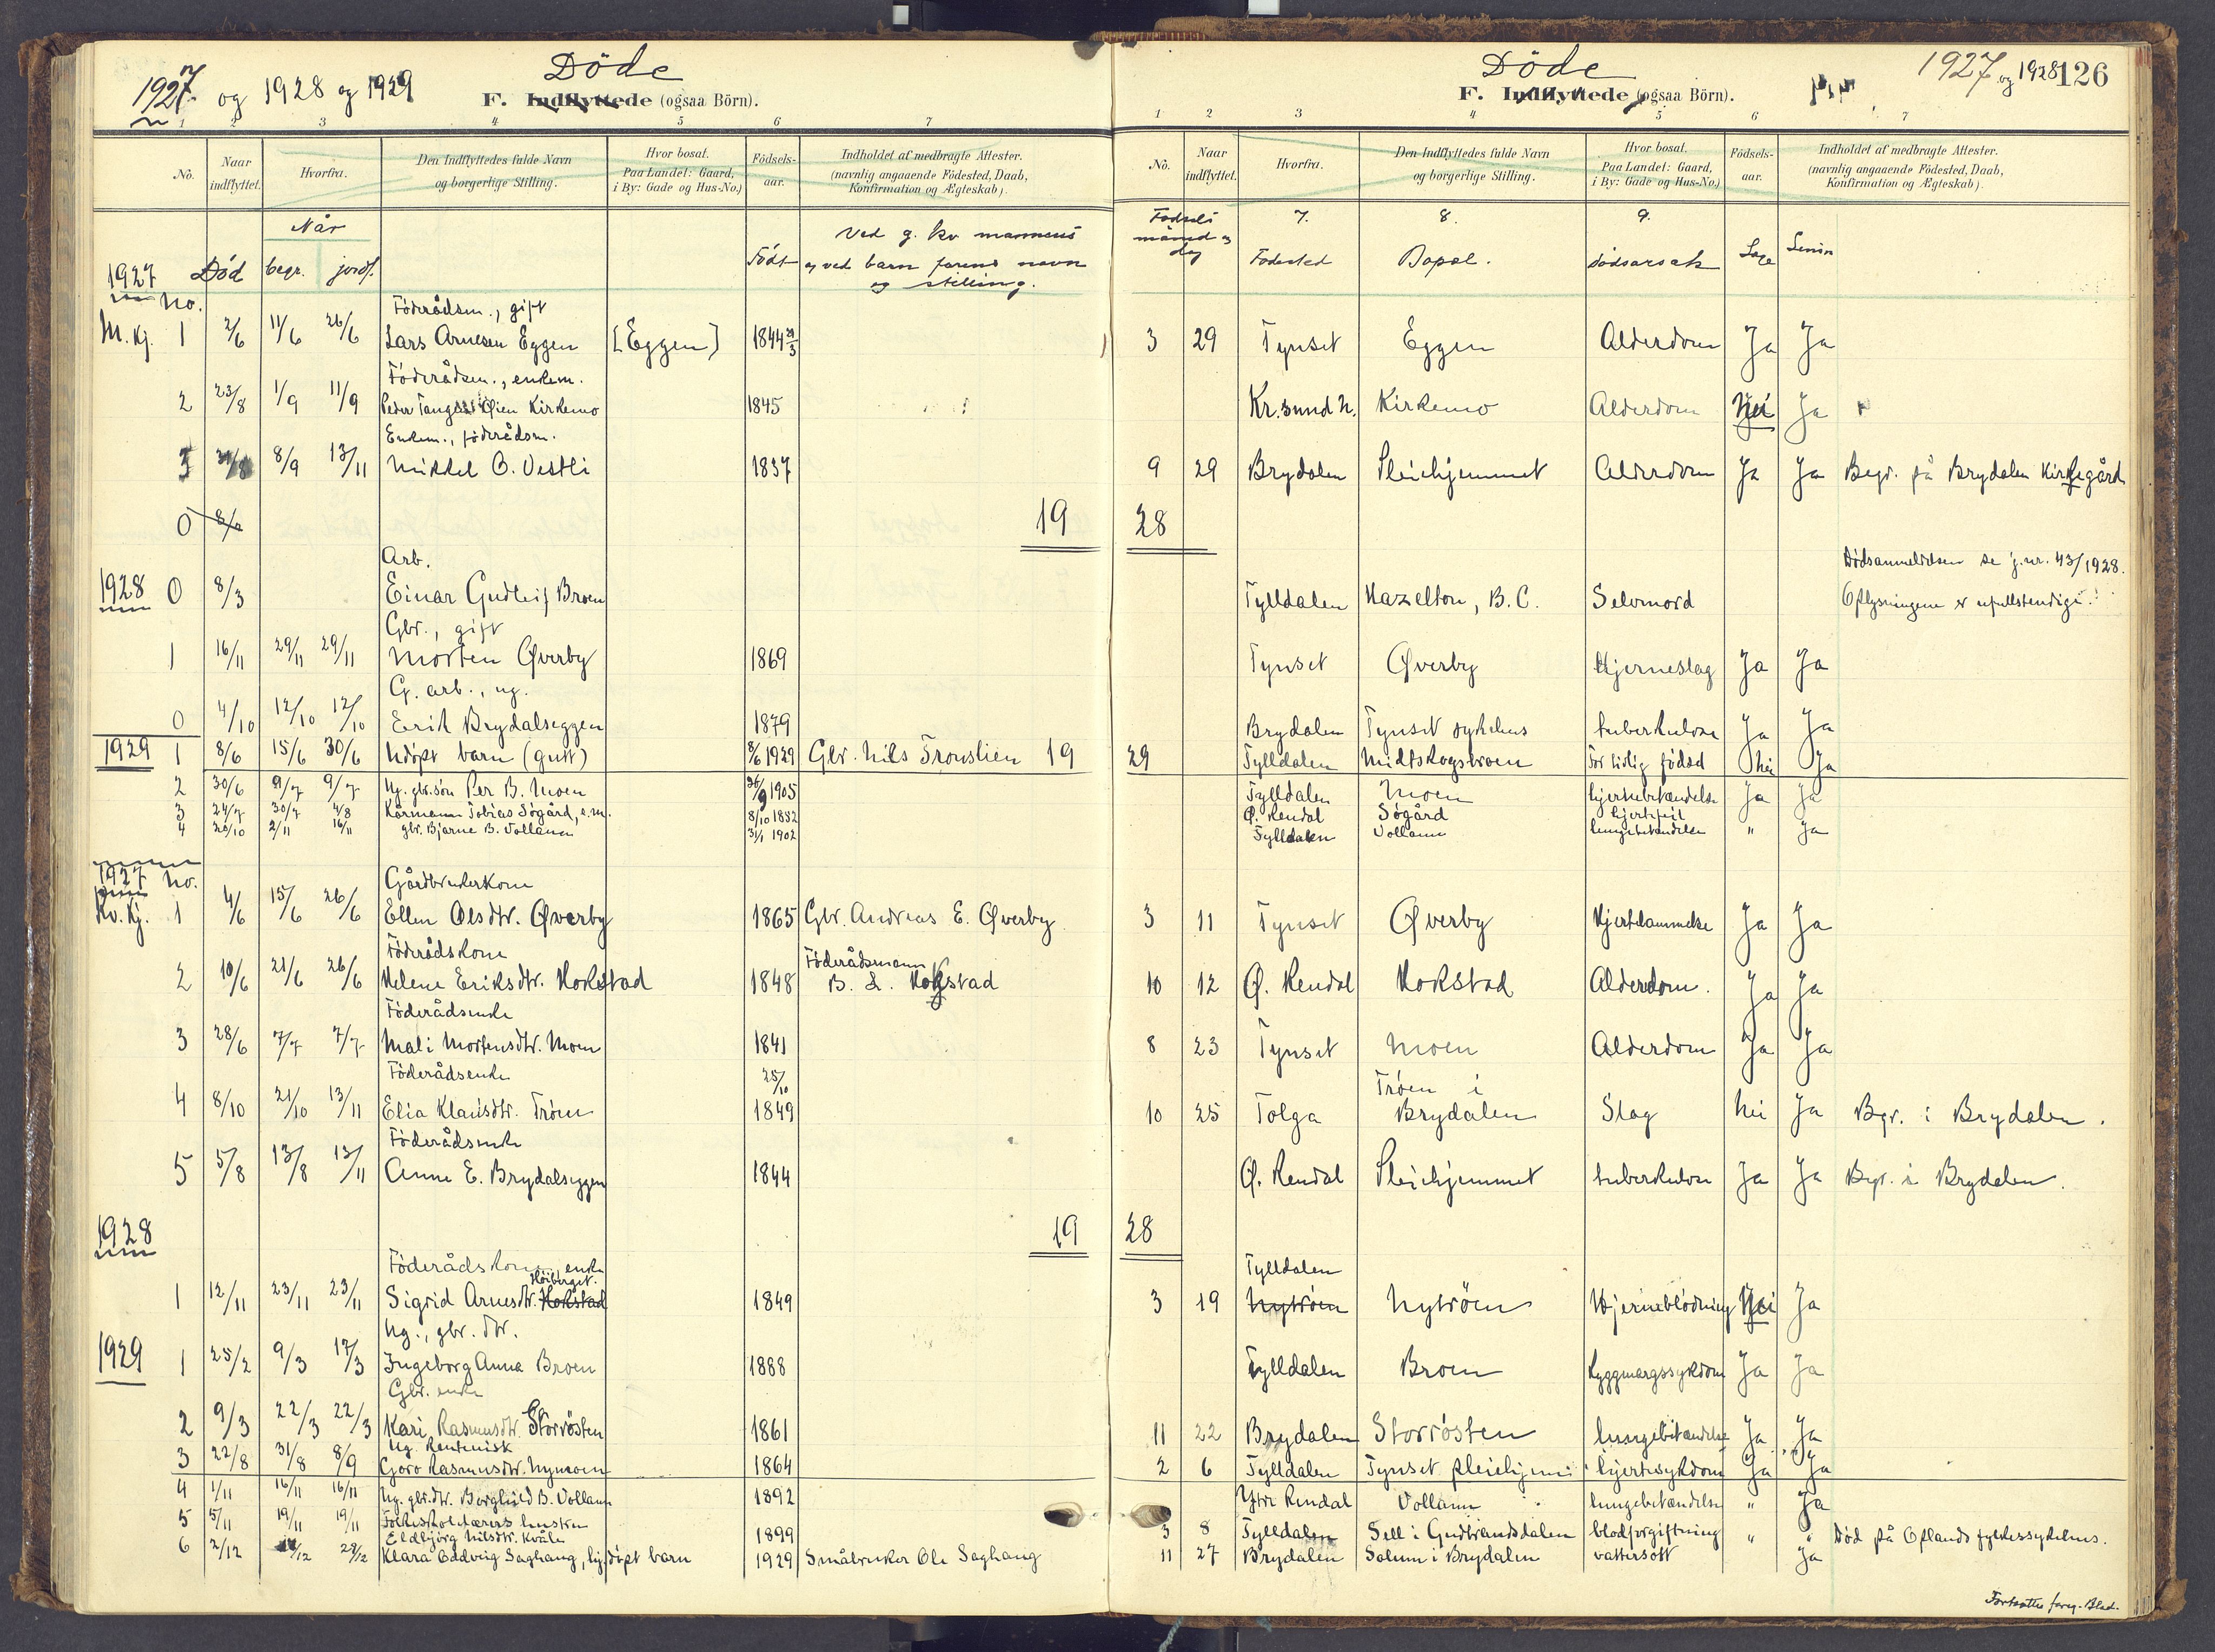 1927 og 1928 og 1929
Döde
F. Indflyttede (ogsaa Börn).
1 2 3 4 5 6 7
No. Naar indflyttet. Hvorfra. Den Indflyttedes fulde Navn og borgerlige Stilling. Hvor bosat. Paa Landet: Gaard, i By: Gade og Hus-No.) Födsels-aar. Indholdet af medbragte Attester. (navnlig angaaende Födested, Daab, Konfirmation og Ægteskab).
Når
1927 Död begr. jordf. Födt Ved g. kv mannens og ved barn farens navn og stilling.
No.
Föderådsm., gift
M. Kj. 1 2/6 11/6 26/6 Lars Arnesen Eggen [Eggen] 1844 29/3
Föderådsm., enkem.
2 23/8 1/9 11/9 Peder Øien Kirkemo 1845
Enkem., föderådsm.
3 31/8 8/9 13/11 Mikkel O. Vestli 1837
0 19
Arb.
1928 0 8/3 Einar Gudleif Broen
Gbr., gift
1 16/11 29/11 29/11 Morten Øverby 1869
G. arb., ug.
0 4/10 12/10 12/10 Erik Brydalseggen 1879
1929 1 8/6 15/6 30/6 Udöpt barn (gutt) 8/6 1929 Gbr. Nils Trouslien 19
2 30/6 9/7 9/7 Ug. gbr. sön Per B. Moen 1905
3 24/7 30/7 4/8 Kårmann Tobias Søgård, e.m. 8/10 1852
4 20/10 2/11 16/11 gbr. Bjarne B. Vollann 31/1 1902
1927 No. Gårdbrukerkone
Kv. Kj. 1 4/6 15/6 26/6 Ellen Olsdtr. Øverby 1865 Gbr. Andreas E. Øverby
Föderådskone Föderådsmann
2 10/6 21/6 26/6 Helene Eriksdtr. Hokstad 1848 B. L. Hokstad
Föderådsenke
3 28/6 7/7 7/7 Mali Mortensdtr. Moen 1841
Föderådsenke 25/10
4 8/10 21/10 13/11 Elia Klausdtr. Tröen 1849
Föderådsenke
5 5/8 13/8 13/11 Anne E. Brydalseggen 1844
1928 19
Föderådskone, enke
Höiberget.
1 12/11 23/11 23/11 Sigrid Arnesdtr. Hokstad 1849
Ug., gbr. dtr.
1929 1 25/2 9/3 17/3 Ingeborg Anna Broen 1888
Gbr. enke
2 9/3 22/3 22/3 Kari Rasmusdtr. Storrösten 1861
Ug. Rentenisk
3 22/8 31/8 8/9 Goro Rasmusdtr. Nymoen 1864
4 1/11 16/11 16/11 Ug. gbr.dtr. Borghild B. Vollann 1892
5 5/11 19/11 19/11 Folkeskolelærers hustru
Eldbjörg Nilsdtr. Kvåle 1899
6 2/12 29/12 Klara Oddveig Saghaug, hj.döpt barn 1929 Småbruker Ole Saghaug
Döde
1927 og 1928 126
F. Indflyttede (ogsaa Börn).
1 2 3 4 5 6 7
No. Naar indflyttet. Hvorfra. Den Indflyttedes fulde Navn og borgerlige Stilling. Hvor bosat. Paa Landet: Gaard, i By: Gade og Hus-No.) Födsels-aar. Indholdet af medbragte Attester. (navnlig angaaende Födested, Daab, Konfirmation og Ægteskab).
Födsels måned og dag 7. Födested 8. Bopæl. 9. Dödsarsak Læge
3 29 Tynset Eggen Alderdom Ja Ja
Kr.sund N. Kirkemo Alderdom Nei Ja
9 29 Brydalen Pleiehjemmet Alderdom Ja Ja Begr. på Brydalen Kirkegård
28
Dödsanmeldelsen se j.nr. 43/1928.
Tylldalen Hazelton, B.C. Selvmord Oplysningene er ufullstendige!
Tynset Øverby Hjerneslag Ja Ja
Brydalen Tynset sykehus tuberkulose Ja Ja
29 Tylldalen Midtskogsbroen For tidlig födsel Nei Ja
Tylldalen Moen Ja Ja
Ø. Rendal Søgård hjertefeil
Tylldalen Vollann lungebetændelse " Ja
3 11 Tynset Øverby Hjertelammelse Ja Ja
10 12 Ø. Rendal Hokstad Alderdom. Ja Ja
8 23 Tynset Moen Alderdom Ja Ja
Tröen i
10 25 Tolga Brydalen Slag Nei Ja Bgr. i Brydalen.
Ø. Rendal Pleiehjemmet tuberkulose Ja Ja Bgr. i Brydalen.
28
Tylldalen
3 19 Nytröen Nytröen Hjerneblödning Nei Ja
Tylldalen Broen Ryggmargssykdom Ja Ja
11 22 Brydalen Storrösten lungebetændelse Ja Ja
2 6 Tylldalen Tynset pleiehjem hjertesykdom Ja Ja
Ytre Rendal Vollann lungebetændelse " Ja
3 8 Tylldalen Sell i Gudbrandsdalen blodforgiftning " " Död på Oplands fylkessykehus.
11 27 Brydalen Solum i Brydalen vattersott Ja
Fortsettes foreg. Blad.